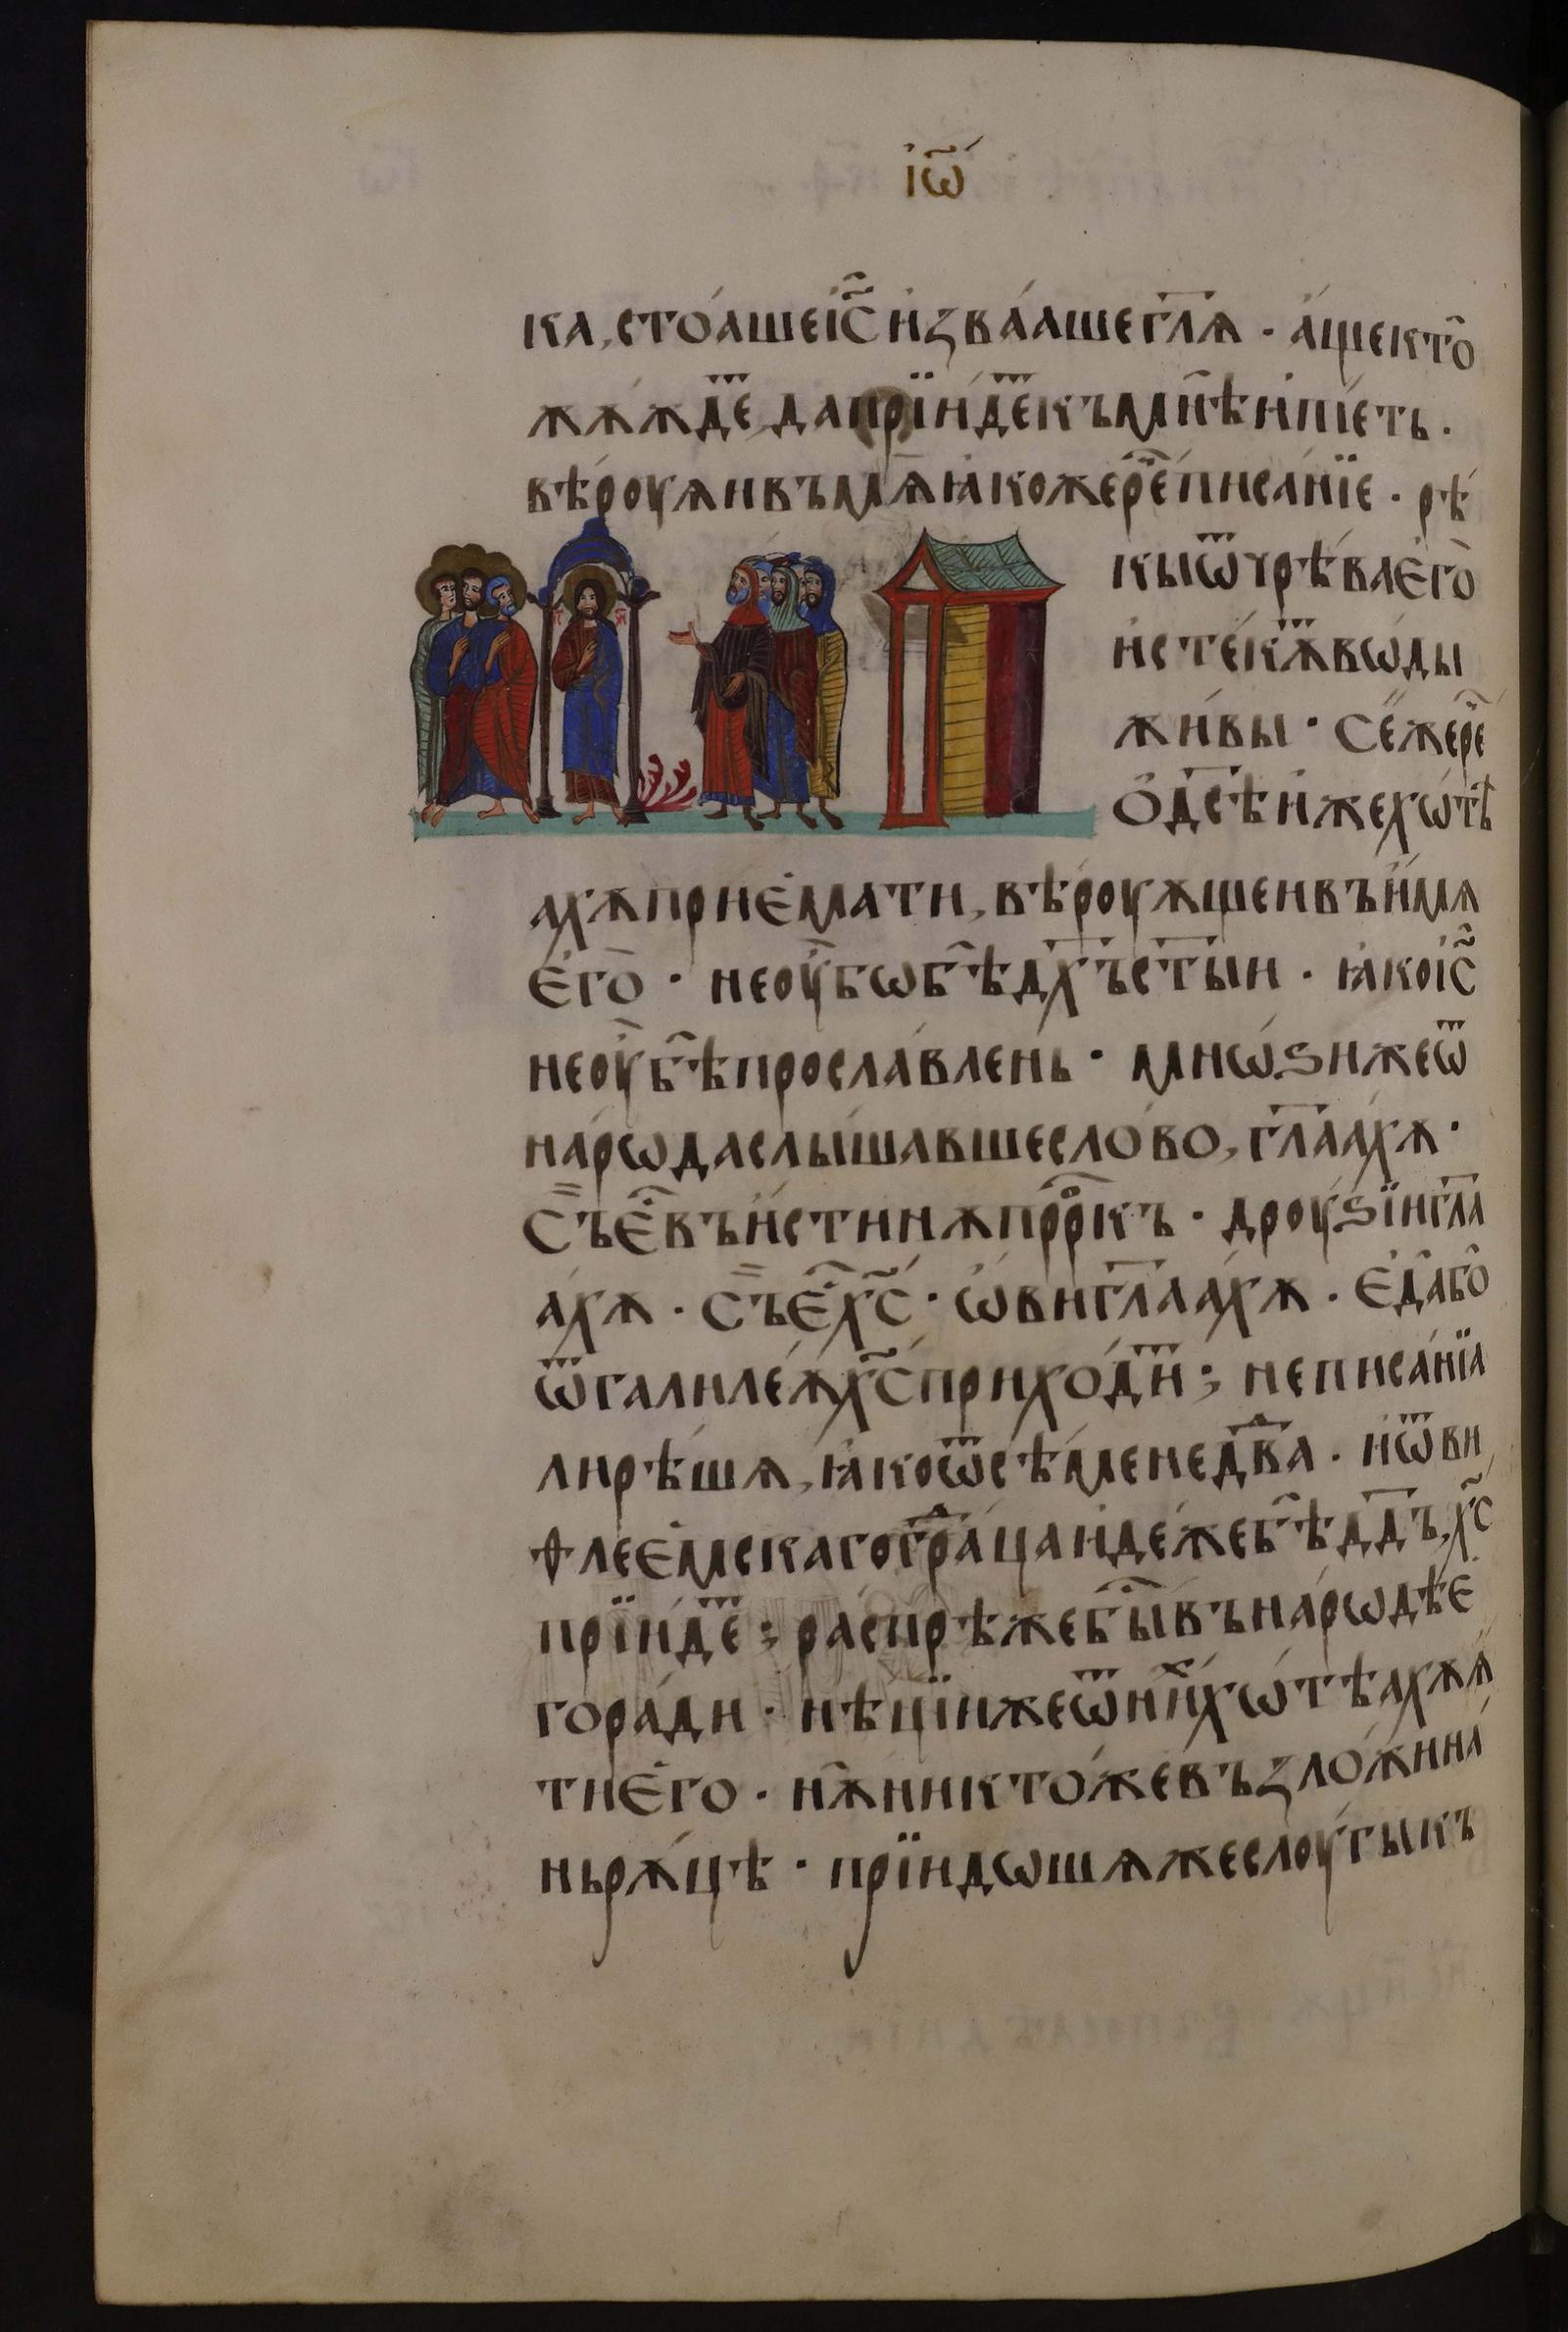 і҃ѡ
ка, стоа́ше і҃с и҆ зва́аше гл҃ѧ · а҆́ще кто̑
жѧждеⷮ, да прїи́деⷮ къ мн҄ѣ и҆ пїеть ·
вѣ́роуѧи въ мѧ ꙗ҆коже реⷱ҇ писа́нїе · рѣ́
кы ѿ чрѣ́ва е҆го̀
и҆стекѫⷮ вѡды
жи́вы · се́ же реⷱ҇
ѡ҆ д҃сѣ и҆же хѡтѣ́
а́хѫ прие҆мати, вѣ́роуѫщеи въ и҆́мѧ
е҆го̀ · не оу҆́ бѡ б҄ѣ дх҃ъ ст҃ыи · ꙗ҆ко і҃с
не оу҆́ б҄ѣ просла́влень · мнѡ́ѕи же ѿ
на́рѡда слы́шавше сло́во, гл҃аа́хѫ ·
съ е҆ⷭ҇ въ и҆́стинѫ пррⷪ҇къ · дроуѕїи гл҃а
а́хѫ · съ е҆ⷭ҇ х҃с · ѡ҆́ви гл҃аа́хѫ · е҆да̀ бо̑
ѿ галиле́ѫ х҃с прихо́диⷮ; не писа́нїа
ли рѣ́шѧ, ꙗ҆ко ѿ сѣ́мене дв҃да · и҆ ѿ ви,
ѳлее҆мскаго граⷣца и҆де́же б҄ѣ дд҃ъ, х҃с
прїи́деⷮ; ра́спрѣ же быⷭ҇ въ на́рѡдѣ е҆
го ра́ди · нѣ́цїи же ѿ ниⷯ хѡ́тѣахѫ ѧ
ти е҆го · нѫ̑ никто́же възло́жи на́
нь рѫ́цѣ · прїидѡшѧ же слоу́гы къ